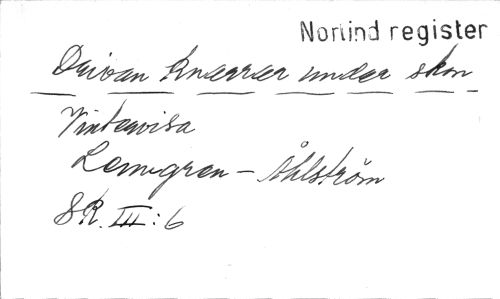 Norlind register
Drivan knarrar under skon
Vintervisa
Lonngren - Åhlström
SR. III: 6